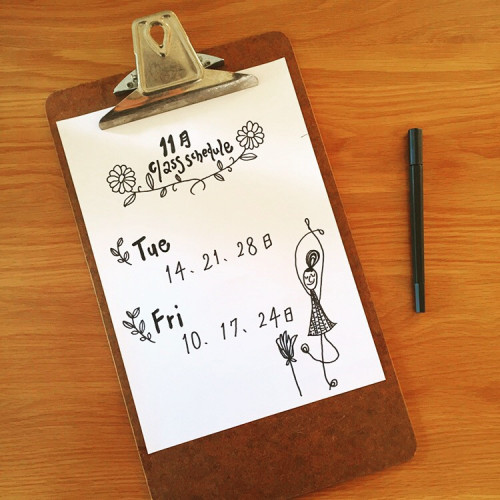 11月
class schedule
Tue
14、21、28日
Fri
10、17、24日